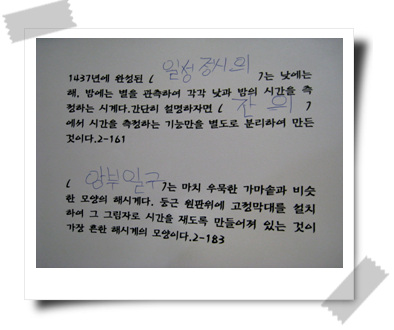 1437년에 완성된 ( 일성정시의 )는 낮에는
해, 밤에는 별을 관측하여 각각 낮과 밤의 시간을 측
정하는 시계다.간단히 설명하자면 ( 간의 )
에서 시간을 측정하는 기능만을 별도로 분리하여 만든
것이다.2-161
( 앙부일구 )는 마치 우묵한 가마솥과 비슷
한 모양의 해시계다. 둥근 원판위에 고정막대를 설치
하여 그 그림자로 시간을 재도록 만들어져 있는 것이
가장 흔한 해시계의 모양이다.2-183